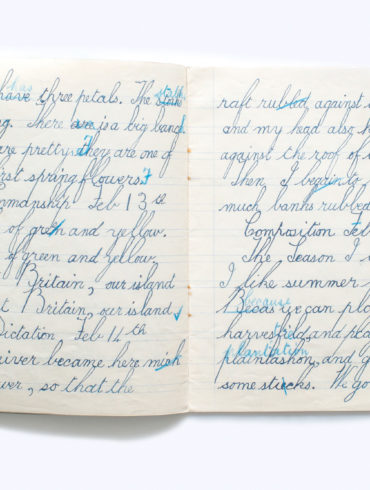 has
have three petals. The stalk
ng. There are is a big bunch
are pretty they are one of
first spring flowers
nmanship Feb 13th
of green and yellow.
of green and yellow
Britain, our island
t Britain, our island
Dictation Feb 14th
river became here much
ver, so that the
raft rubbed against
and my head also
against the roof of
Then I began to
much banks rubbed
Composition Feb
The Season I
I like summer
because
Becaus we can pla
harvesfield and pla
plantation
plaintashon, and g
some sticks. We go